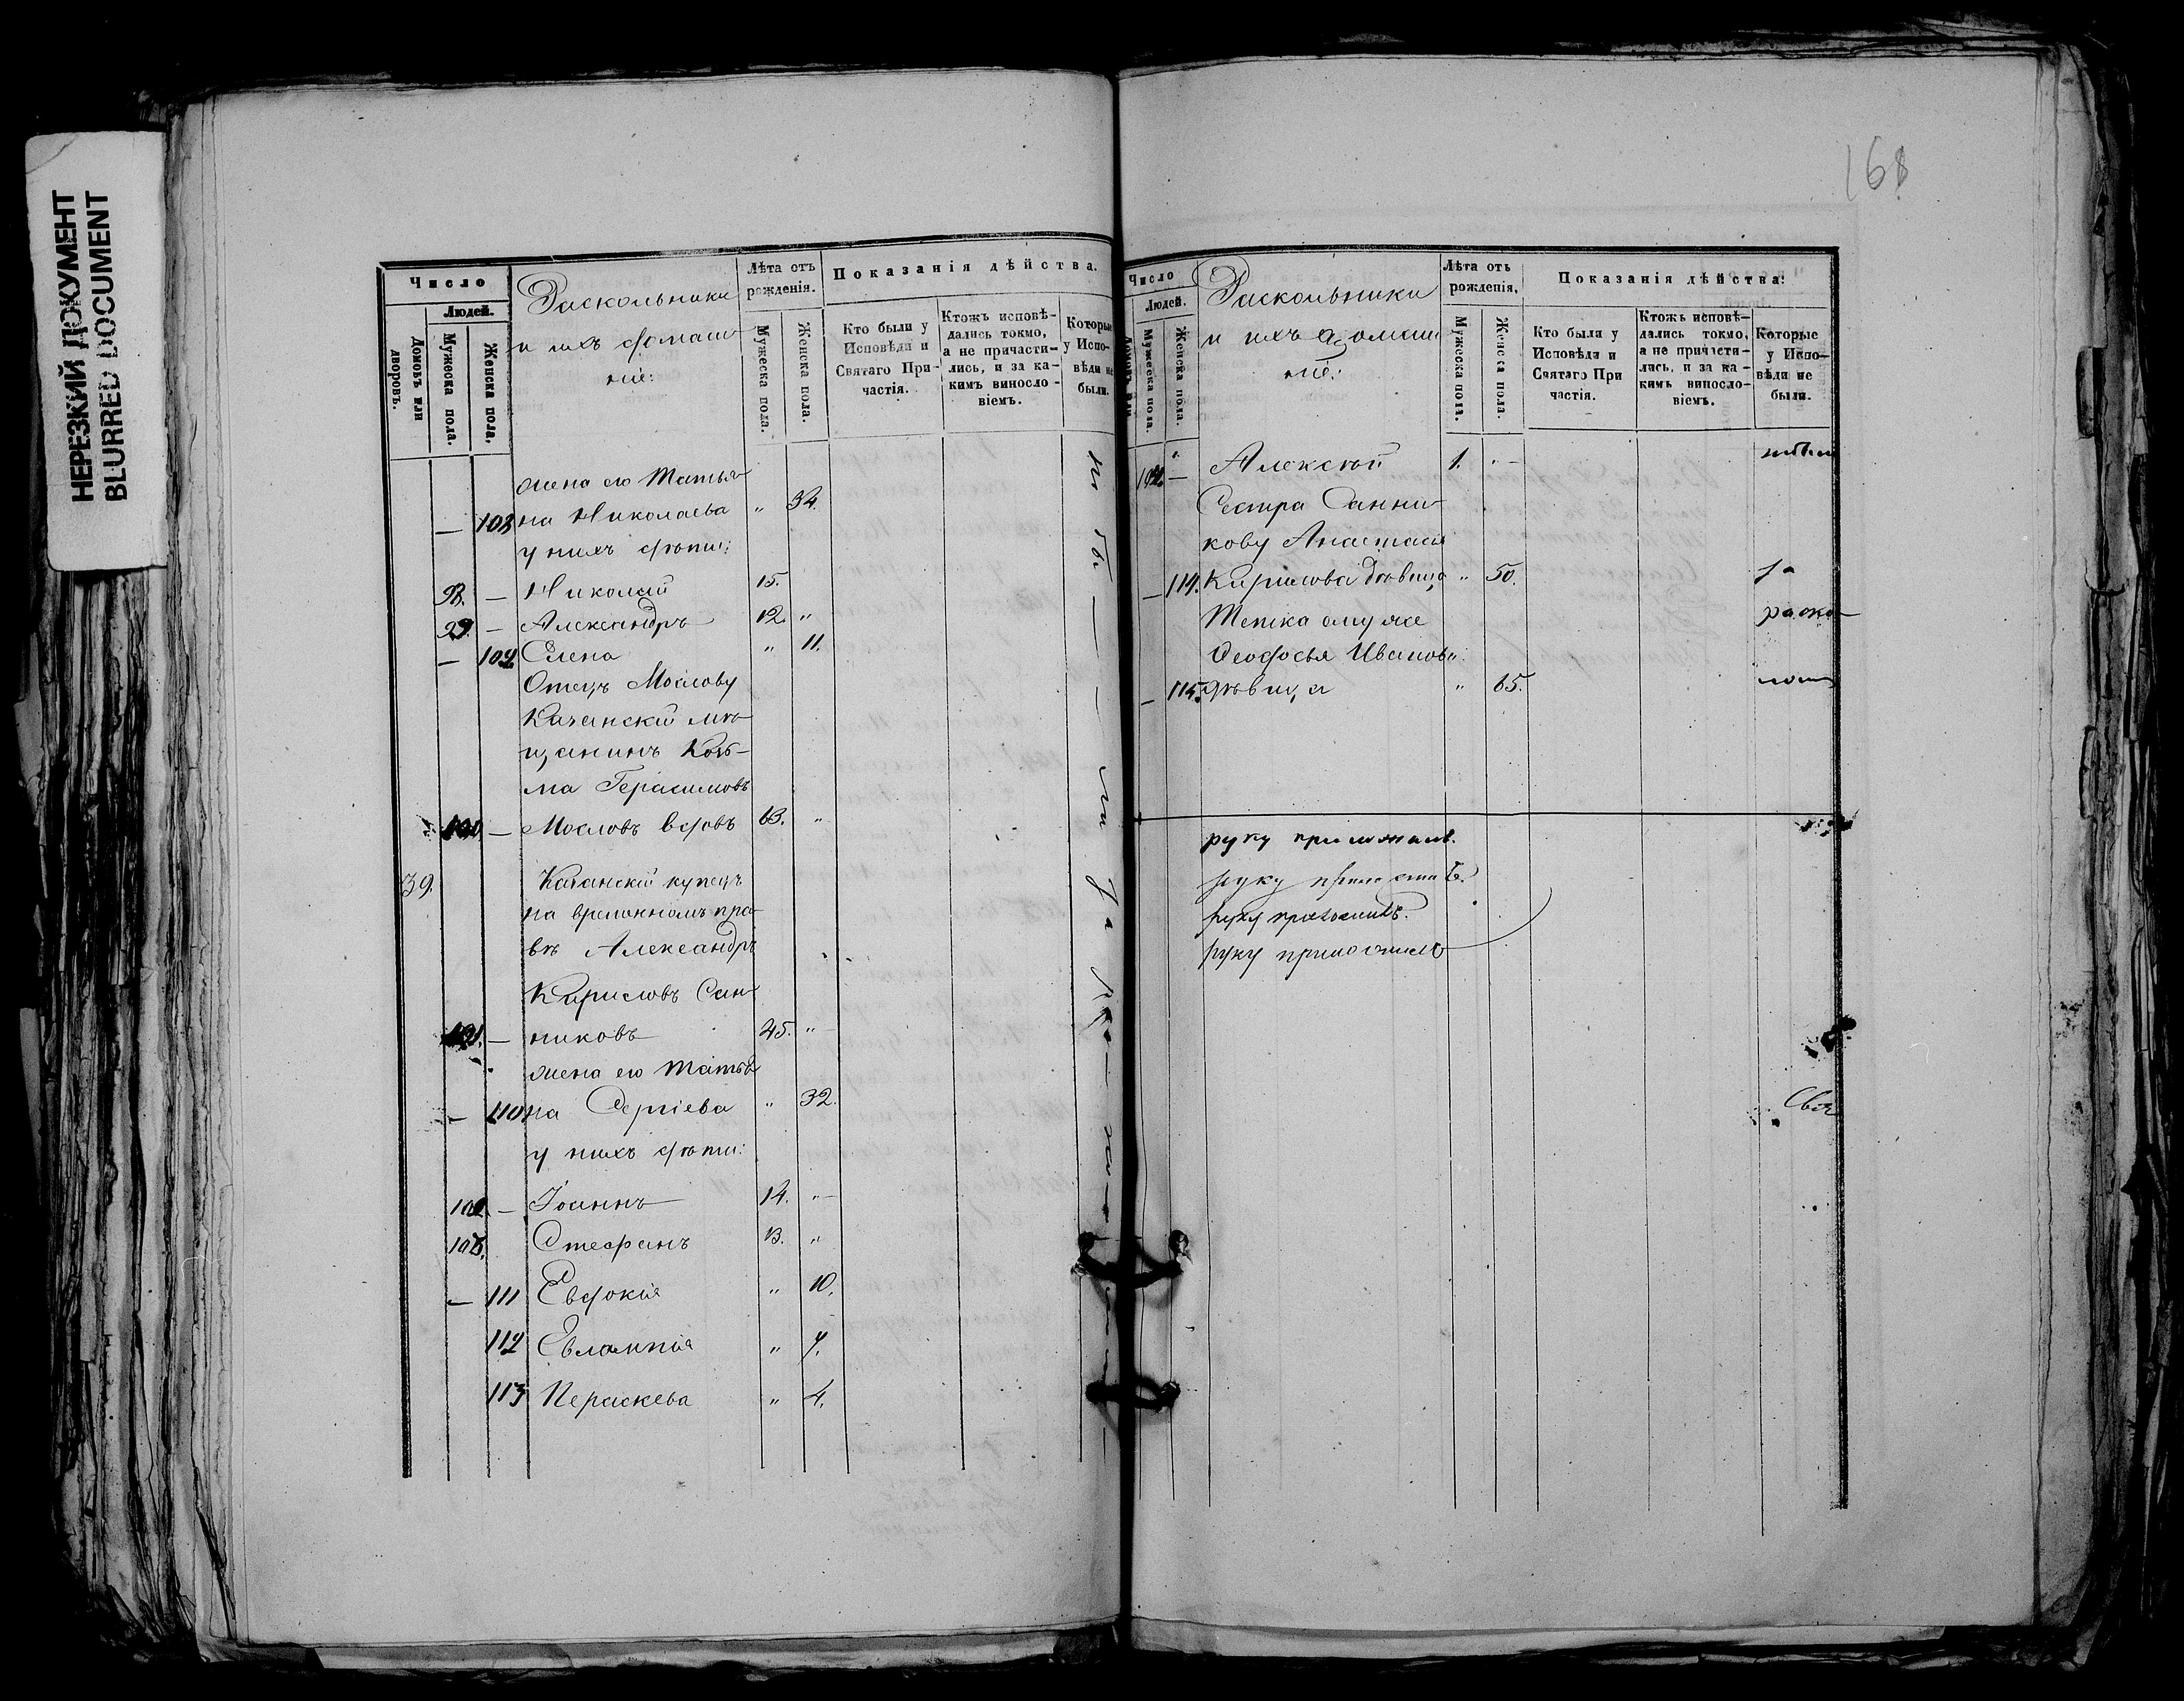 НЕРЕЗКИЙ ДОКУМЕНТ
BLURRED DOCUMENT
168
Число
Людей.
Домовъ или дворовъ.
Мужеска пола.
Женска пола.
Раскольники
и ихъ домаш
ніе:
Лѣта отъ рожденія.
Мужеска пола.
Женска пола.
Показанія дѣйства.
Кто были у Исповѣди и Святаго Причастія.
Ктожъ исповѣдались токмо, а не причастились, и за какимъ винословіемъ.
Которые у Исповѣди не были.
жена его Татья
— 108 на Николаева " 34.
у нихъ дѣти:
98. — Николай 15.
99. — Александръ 12. "
— 109. Елена " 11.
Отецъ Маслову
Казанскій мѣ
щанинъ Козь-
ма Герасимовъ
100. — Масловъ вдовъ 63. "
39. Казанскій купецъ
на временномъ пра
вѣ Александръ
Кириловъ Сан
101. — никовъ 45. "
жена его Татья
— 110 на Сергіева " 32.
у нихъ дѣти:
102. — Іоаннъ 14. "
103. Стефанъ 13. "
— 111 Евдокія " 10.
112 Евлампія " 7.
113 Пераскева " 4.
не бы — — ли за
Число
Людей.
Мужеска пола.
Женска пола.
Раскольники
и ихъ домаш
ніе:
Лѣта отъ рожденія,
Мужеска пола.
Женска пола.
Показанія дѣйства:
Кто были у Исповѣди и Святаго Причастія.
Ктожъ исповѣдались токмо, а не причастились, и за какимъ винословіемъ.
Которые у Исповѣди не были.
104. — Алексѣй 1. "
Сестра Санни
кову Анастасія
— 114. Кирилова дѣвица " 50. за
Тетка ему же раско
Феодосья Иванов
— 115. дѣвица " 65.
руку приложилъ.
руку приложилъ.
руку приложилъ.
руку приложилъ
Свя